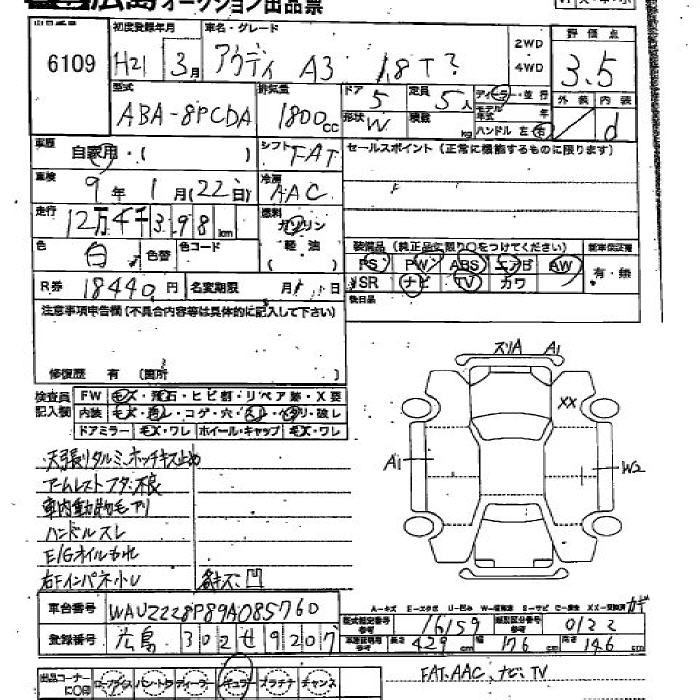 広島オークション出品票
初度登録年月 車名・グレード 2WD 4WD 評価点
6109 H21 3月 アウディ A3 1.8T? 3.5
型式 排気量 ドア 定員 ディーラー・並行
ABA-8PCDA 1800cc 5 5人 モデル年式 年
形状 W 積載 kg ハンドル 左・右 外装 内装 d
車歴 自家用・( ) シフト FAT セールスポイント(正常に機能するものに限ります)
車検 9年1月(22日) 冷房 AAC
走行 12万4千398km 燃料 ガソリン 軽油 ( )
色 白 色替 色コード 装備品(純正品に限り○をつけてください) 新車保証書
PS PW ABS エアB AW 有・無
R券 18440円 名変期限 月 日 SR ナビ TV カワ
注意事項申告欄(不具合内容等は具体的に記入して下さい) 後日品
修復歴 有 (箇所
検査員記入欄 FW キズ・飛石・ヒビ割・リペア跡・X要
内装 キズ・汚レ・コゲ・穴・スレ・ヘタリ・破レ
ドアミラー キズ・ワレ ホイール・キャップ キズ・ワレ
ズリA A1
XX
A1
W2
天張りタルミ、ホッチキス止め
アームレストフタ不良
車内動物毛アリ
ハンドルスレ
E/Gオイルもれ
右Fインパネ小レ 各キズ凹
車台番号 WAUZZZ8P89A085760
A-キズ E-エクボ U-凹み W-補修跡 S-サビ C-腐食 XX-交換済
型式指定番号 参考 16159 類別区分番号 参考 0122
登録番号 広島 302 せ 9207
長さ 429cm 幅 176 高さ 146cm
出品コーナーに○印 ロープライス バントラ ディーラー チョクラ プラチナ チャンス
FAT、AAC、ナビ、TV